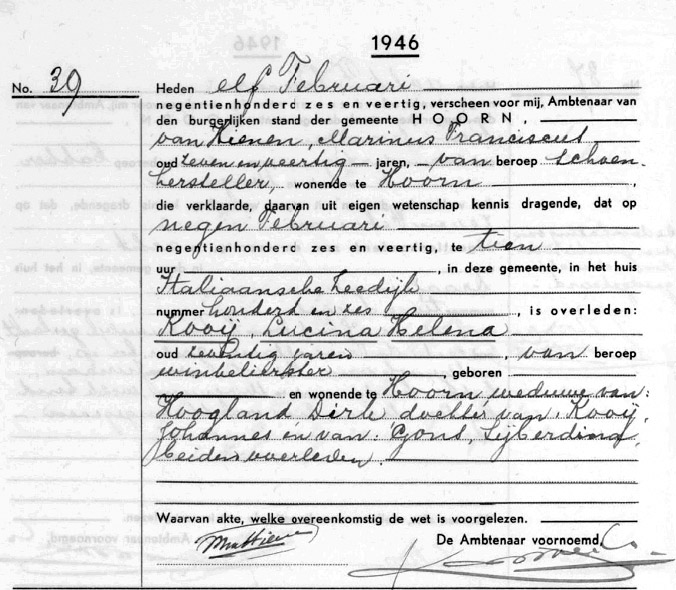 1946
No. 39 Heden elf Februari
negentienhonderd zes en veertig, verscheen voor mij, Ambtenaar van
den burgerlijken stand der gemeente HOORN,
van Hienen, Marinus Franciscus
oud zeven en veertig jaren, van beroep schoen-
hersteller, wonende te Hoorn,
die verklaarde, daarvan uit eigen wetenschap kennis dragende, dat op
negen Februari
negentienhonderd zes en veertig, te tien
uur, in deze gemeente, in het huis
Italiaansche Zeedijk
nummer honderd en zes, is overleden:
Kooij, Lucina Helena
oud zeventig jaren, van beroep
winkelierster, geboren
en wonende te Hoorn weduwe van:
Hoogland Dirk dochter van: Kooij,
Johannes en van: Gons, Sijberdina,
beiden overleden.
Waarvan akte, welke overeenkomstig de wet is voorgelezen.
De Ambtenaar voornoemd,